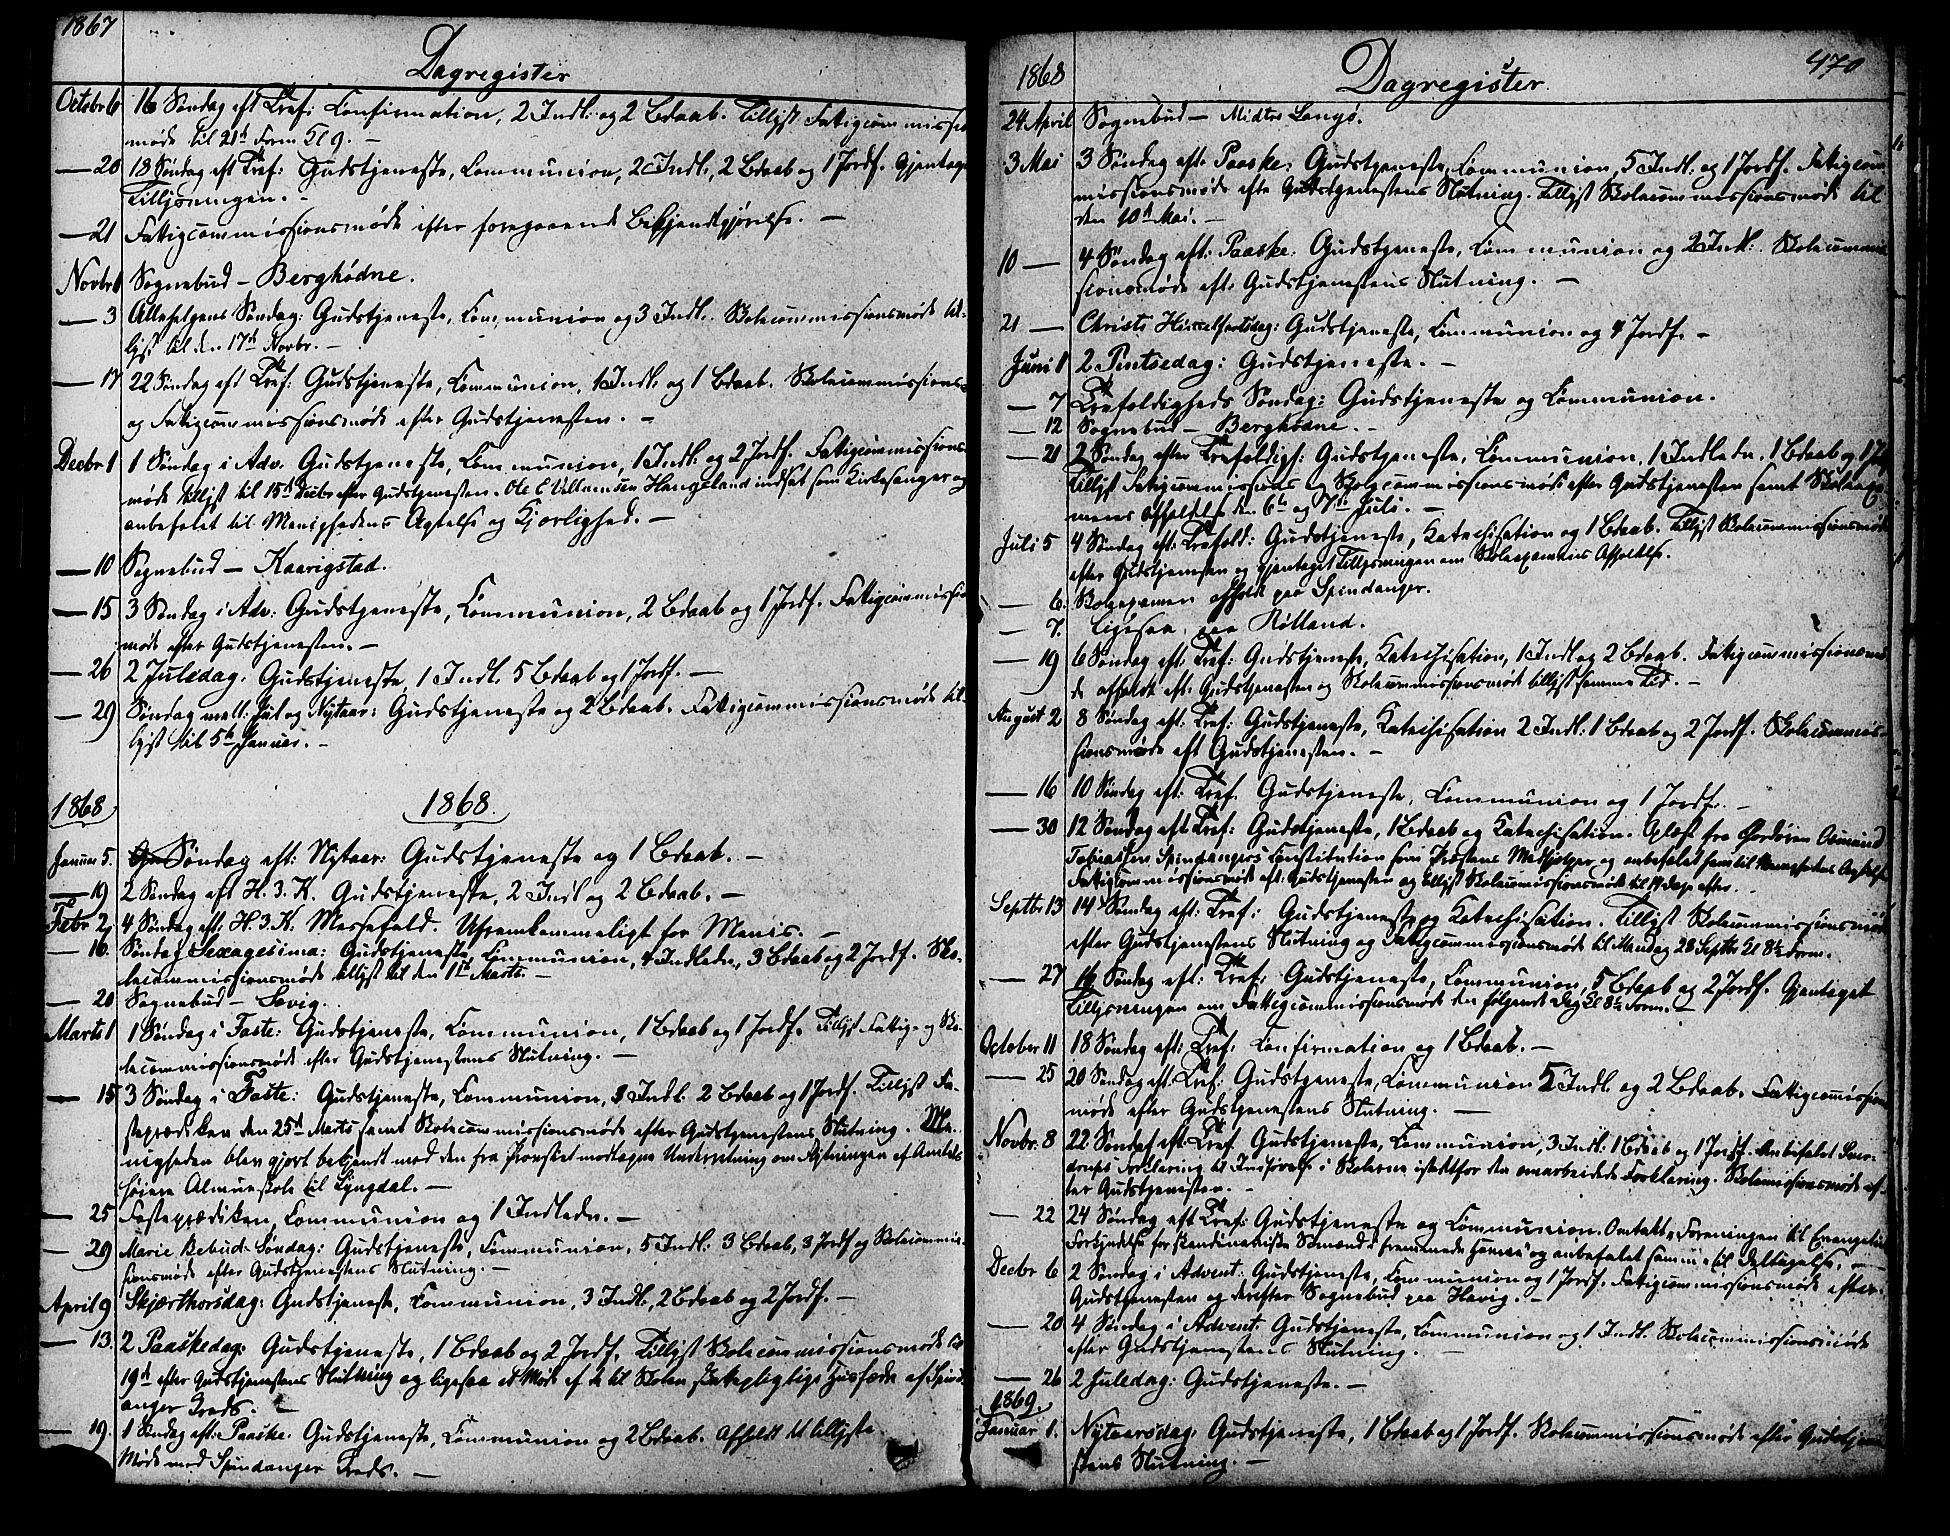 1867
Dagregister
Octobr 6 16 Søndag eft Tref: Confirmation, 2 Indl: og 2 Bdaab. Tillyst Fatigcommissions
møde til 21d Form Kl 9. –
— 20 18 Søndag eft Tref: Gudstjeneste, Communion, 2 Indl., 2 Bdaab og 1 Jordf. Gjentaget
Tillysningen. –
— 21 Fatigcommissionsmøde efter foregaaende Bekjendtgjørelse. –
Novbr 1 Sognebud – Berghødne.
— 3 Allehelgens Søndag: Gudstjeneste, Communion og 3 Indl. Skolecommissionsmøde til-
lyst til den 17d Novbr. –
— 17 22 Søndag eft Tref: Gudstjeneste, Communion, 1 Indl: og 1 Bdaab. Skolecommissions-
og Fatigcommissionsmøde efter Gudstjenesten. –
Decbr 1 1 Søndag i Adv. Gudstjeneste, Communion, 1 Indl: og 2 Jordf. Fatigcommissions-
møde tillyst til 15d Decbr efter Gudstjenesten. Ole C Villumsen Haugeland indsat som Kirkesanger og
anbefalet til Menighedens Agtelse og Kjærlighed. –
— 10 Sognebud – Kaarigstad.
— 15 3 Søndag i Adv: Gudstjeneste, Communion, 2 Bdaab og 1 Jordf. Fatigcommissions
møde efter Gudstjenesten. –
— 26 2 Juledag. Gudstjeneste, 1 Indl. 5 Bdaab og 1 Jordf. –
— 29 Søndag mell: Jul og Nytaar: Gudstjeneste og 2 Bdaab. Fatigcommissionsmøde til-
lyst til 5te Januar. –
1868 1868.
Januar 5. Søndag eft: Nytaar: Gudstjeneste og 1 Bdaab. –
— 19 2 Søndag eft H. 3. K. Gudstjeneste, 2 Indl og 2 Bdaab. –
Febr 2 4 Søndag eft: H. 3. K. Messefald. Ufremkommeligt for Menis. –
— 16. Søndag Sexagesima: Gudstjeneste, Communion, 4 Indledn, 3 Bdaab og 2 Jordf. Sko-
lecommissionsmøde tillyst til den 1te Marts. –
— 20 Sognebud – Sevig.
Marts 1 1 Søndag i Faste: Gudstjeneste, Communion, 1 Bdaab og 1 Jordf. Tillyst Fattig- og Sko-
lecommissionsmøde efter Gudstjenestens Slutning. –
— 15 3 Søndag i Faste: Gudstjeneste, Communion, 3 Indl: 2 Bdaab og 1 Jordf. Tillyst Fa-
steprædiken den 25d Marts samt Skolecommissionsmøde efter Gudstjenestens Slutning. Me-
nigheden blev gjort bekjendt med den fra Provstiet modtagne Underretning om Flytningen af Amtets
høiere Almueskole til Lyngdal. –
— 25 Fasteprædiken, Communion og 1 Indledn. –
— 29 Mariæ Bebud: Søndag: Gudstjeneste, Communion, 5 Indl: 3 Bdaab, 3 Jordf og Skolecommis-
sionsmøde efter Gudstjenestens Slutning. –
April 9 Skjærthorsdag: Gudstjeneste, Communion, 3 Indl., 2 Bdaab og 2 Jordf. –
— 13. 2 Paaskedag: Gudstjeneste, 1 Bdaab og 2 Jordf. Tillyst Skolecommissionsmøde til
19d efter Gudstjenestens Slutning og ligesaa et Møde af de til Skolen skattepligtige Husfædre af Spind-
anger Kreds. –
— 19. 1 Søndag eft: Paaske. Gudstjeneste, Communion og 2 Bdaab. Afholdt det tillyste
Møde med Spindanger Kreds. –
1868 Dagregister. 470
24 April Sognebud – Midtbø Langø.
3 Mai 3 Søndag eft: Paaske. Gudstjeneste, Communion, 5 Indl: og 1 Jordf. Fatigcom-
missionsmøde efter Gudstjenestens Slutning. Tillyst Skolecommissionsmøde til
den 10d Mai. –
10 — 4 Søndag eft: Paaske. Gudstjeneste, Communion og 2 Indl: Skolecommis
sionsmøde eft: Gudstjenestens Slutning. –
21 — Christi Himmelfartsdag: Gudstjeneste, Communion og 4 Jordf. –
Juni 1 2 Pintsedag: Gudstjeneste. –
— 7 Trefoldigheds Søndag: Gudstjeneste og Communion.
— 12 Sognebud – Berghødne. –
— 21 2 Søndag efter Trefoldigh: Gudstjeneste, Communion, 1 Indledn, 1 Bdaab og 1 Jordf
Tillyst Fatigcommissions og Skolecommissionsmøde efter Gudstjenesten samt Skoleexa-
mens Afholdelse den 6te og 7de Juli. –
Juli 5 4 Søndag eft: Trefold: Gudstjeneste, Katechisation og 1 Bdaab. Tillyst Skolecommissionsmøde
efter Gudstjenesten og gjentaget Tillysningen om Skoleexamens Afholdelse.
— 6. Skoleexamen afholdt paa Spindanger.
— 7. Ligesaa paa Rølland.
— 19 6 Søndag eft: Tref: Gudstjeneste, Katechisation, 1 Indl og 2 Bdaab. Fatigcommissionsmø-
de afholdt eft: Gudstjenesten og Skolecommissionsmøde tillyst samme Tid. –
August 2 8 Søndag eft: Tref: Gudstjeneste, Katechisation 2 Indl: 1 Bdaab og 2 Jordf. Skolecommis-
sionsmøde eft Gudstjenesten. –
— 16 10 Søndag eft: Tref. Gudstjeneste, Communion og 1 Jordf. –
— 30 12 Søndag eft Tref: Gudstjeneste, 1 Bdaab og Katechisation. Oplæst fra Ordføren Asmund
Tobiassen Spindangers Constitution som Præstens Medhjælper og anbefalet ham til Menighedens Agtelse
Fatigcommissionsmøde eft: Gudstjenesten og tillyst Skolecommissionsmøde til 14 Dage efter. –
Septbr 13 14 Søndag eft: Tref: Gudstjeneste og Katechisation. Tillyst Skolecommissionsmøde
efter Gudstjenestens Slutning og Fatigcommissionsmøde til Mandag 28 Septbr Kl 8½ Form.
— 27 16 Søndag eft: Tref: Gudstjeneste, Communion, 5 Bdaab og 2 Jordf. Gjentaget
Tillysningen om Fatigcommissionsmøde den følgende Dag Kl 8½ Form. –
October 11 18 Søndag eft: Tref: Confirmation og 1 Bdaab. –
— 25 20 Søndag eft: Tref: Gudstjeneste, Communion 5 Indl og 2 Bdaab. Fatigcommissions
møde efter Gudstjenestens Slutning. –
Novbr. 8 22 Søndag eft Tref. Gudstjeneste, Communion, 3 Indl: 1 Bdaab og 1 Jordf. Anbefalet Sver-
drups Forklaring til Indførelse i Skolerne istedetfor den omarbeidede Forklaring. Skolecommissionsmøde ef-
ter Gudstjenesten. –
— 22 24 Søndag eft Tref: Gudstjeneste og Communion. Omtalt Foreningen til Evangeliets
Forkyndelse for skandinaviske Sømænd i fremmede Havne og anbefalet samme til Deltagelse. –
Decbr 6 2 Søndag i Advent: Gudstjeneste, Communion og 1 Jordf. Fatigcommissionsmøde efter
Gudstjenesten og derefter Sognebud paa Havig. –
— 20 4 Søndag i Advent Gudstjeneste, Communion og 1 Indl. Skolecommissionsmøde
efter Gudstjenestens Slutning. –
— 26 2 Juledag: Gudstjeneste. –
1869.
Januar 1. Nytaarsdag: Gudstjeneste, 1 Bdaab og 1 Jordf. Skolecommissionsmøde efter Gudstjene
stens Slutning. –